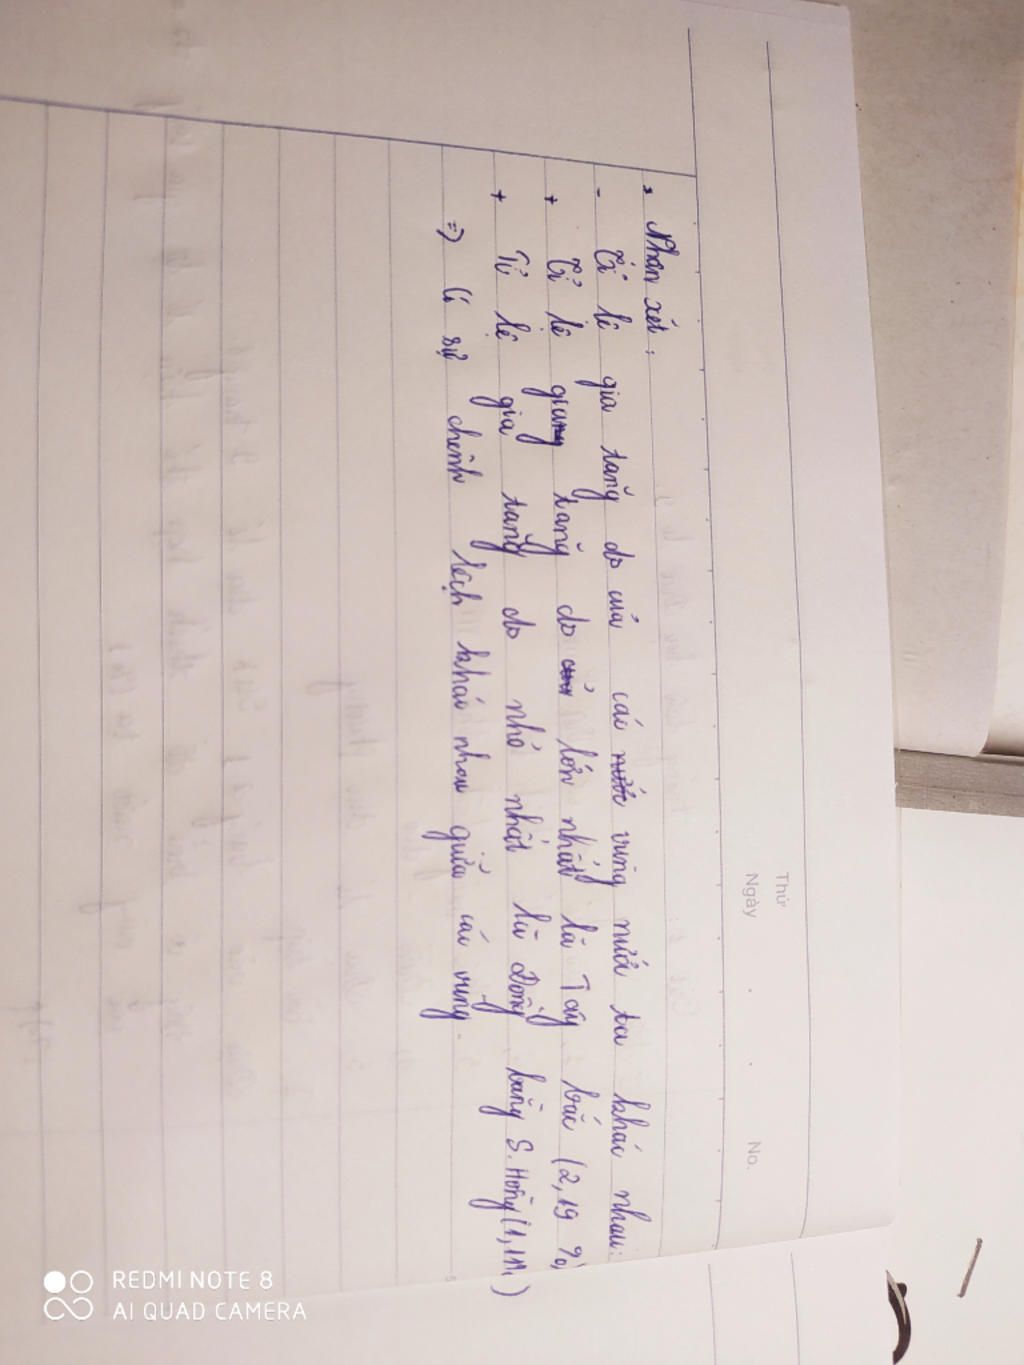 Thứ
Ngày . . No.
* Nhận xét:
- Tỉ lệ gia tăng ds của các nước vùng nước ta khác nhau:
+ Tỉ lệ giang tăng ds ở lớn nhất là Tây bắc (2,19 %)
+ Tỉ lệ gia tăng ds nhỏ nhất là Đồng bằng S. Hồng (1,11%)
=> Có sự chênh lệch khác nhau giữa các vùng.
REDMI NOTE 8
AI QUAD CAMERA